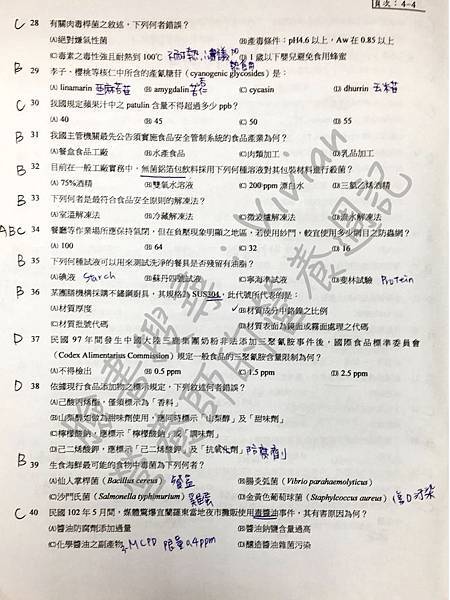 頁次：4-4
C 28 有關肉毒桿菌之敘述，下列何者錯誤？
(A)絕對嫌氣性菌 (B)產毒條件：pH4.6 以上，Aw 在 0.85 以上
(C)毒素之毒性強且耐熱到 100℃ (D) 1 歲以下嬰兒避免食用蜂蜜
B 29 李子、櫻桃等核仁中所含的產氰醣苷 (cyanogenic glycosides) 是：
(A) linamarin 亞麻苦苷 (B) amygdalin 苦杏仁苷 (C) cycasin (D) dhurrin
C 30 我國規定蘋果汁中之 patulin 含量不得超過多少 ppb？
(A) 40 (B) 45 (C) 50 (D) 55
B 31 我國主管機關最先公告須實施食品安全管制系統的食品產業為何？
(A)餐盒食品工廠 (B)水產食品 (C)肉類加工 (D)乳品加工
B 32 目前在一般工廠實務中，無菌鋁箔包飲料採用下列何種溶液對其包裝材料進行殺菌？
(A) 75%酒精 (B)雙氧水溶液 (C) 200 ppm 漂白水 (D)三氯乙烯酒精
B 33 下列何者是最符合食品安全原則的解凍法？
(A)室溫解凍法 (B)冷藏解凍法 (C)微波爐解凍法 (D)流水解凍法
ABC 34 餐廳等作業場所應保持氣閉，但在負壓現象明顯之地區，若使用紗門，較宜使用多少網目之防蟲網？
(A) 100 (B) 64 (C) 32 (D) 16
B 35 下列何種試液可以用來測試洗淨的餐具是否殘留有油脂？
(A)碘液 starch (B)蘇丹四號試液 (C)寧海準試液 (D)斐林試驗 Protein
B 36 某團膳機構採購不鏽鋼廚具，其規格為 SUS304，此代號所代表的是：
(A)材質厚度 (B)材質成分中鉻鎳之比例
(C)材質批號代碼 (D)材質表面為鏡面或霧面處理之代碼
D 37 民國 97 年間發生中國大陸三鹿集團奶粉非法添加三聚氰胺事件後，國際食品標準委員會
(Codex Alimentarius Commission) 規定一般食品的三聚氰胺含量限制為何？
(A)不得檢出 (B) 0.5 ppm (C) 1.5 ppm (D) 2.5 ppm
D 38 依據現行食品添加物之標示規定，下列敘述何者錯誤？
(A)己酸丙烯酯，僅須標示為「香料」
(B)山梨醇如做為甜味劑使用，應同時標示「山梨醇」及「甜味劑」
(C)檸檬酸鈉，應標示「檸檬酸鈉」或「調味劑」
(D)己二烯酸鉀，應標示「己二烯酸鉀」及「抗氧化劑」防腐劑
B 39 生食海鮮最可能的食物中毒菌為下列何者？
(A)仙人掌桿菌 (Bacillus cereus) (B)腸炎弧菌 (Vibrio parahaemolyticus)
(C)沙門氏菌 (Salmonella typhimurium) 雞蛋 (D)金黃色葡萄球菌 (Staphylccoccus aureus) 傷口污染
C 40 民國 102 年 5 月間，媒體驚爆宜蘭羅東當地夜市攤販使用毒醬油事件，其有害原因為何？
(A)醬油防腐劑添加過量 (B)醬油鈉鹽含量過高
(C)化學醬油之副產物 3-MCPD 限量 0.4ppm (D)釀造醬油雜菌污染
Vivian
營養師的營養週記